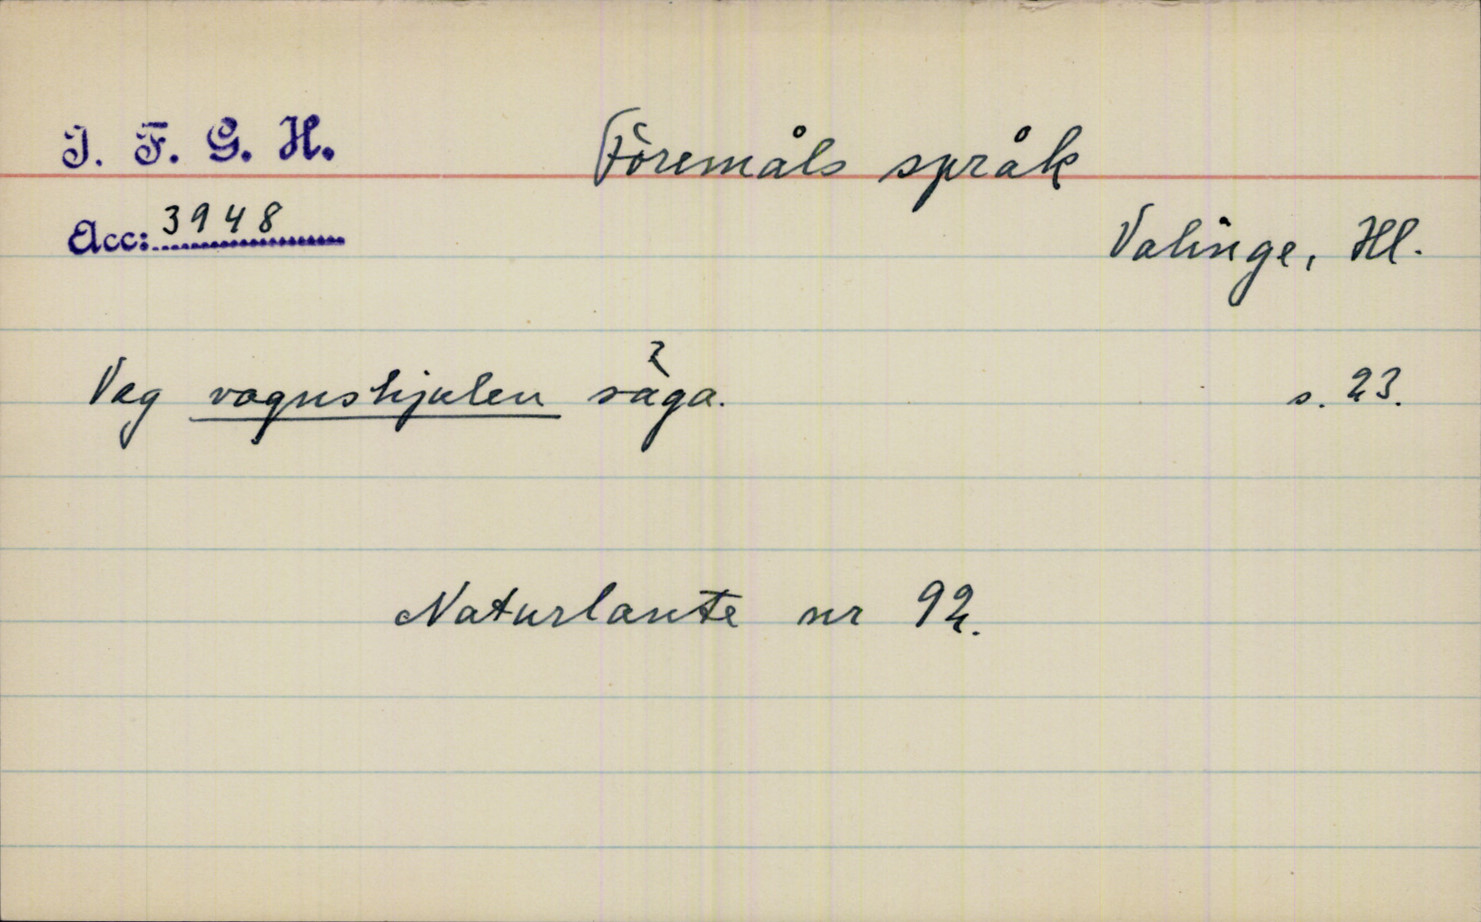 I. F. G. H.
Föremåls språk
Acc: 3948
Valinge, Hl.
Vag vagnshjulen säga. s. 23.
Naturlante nr 92.